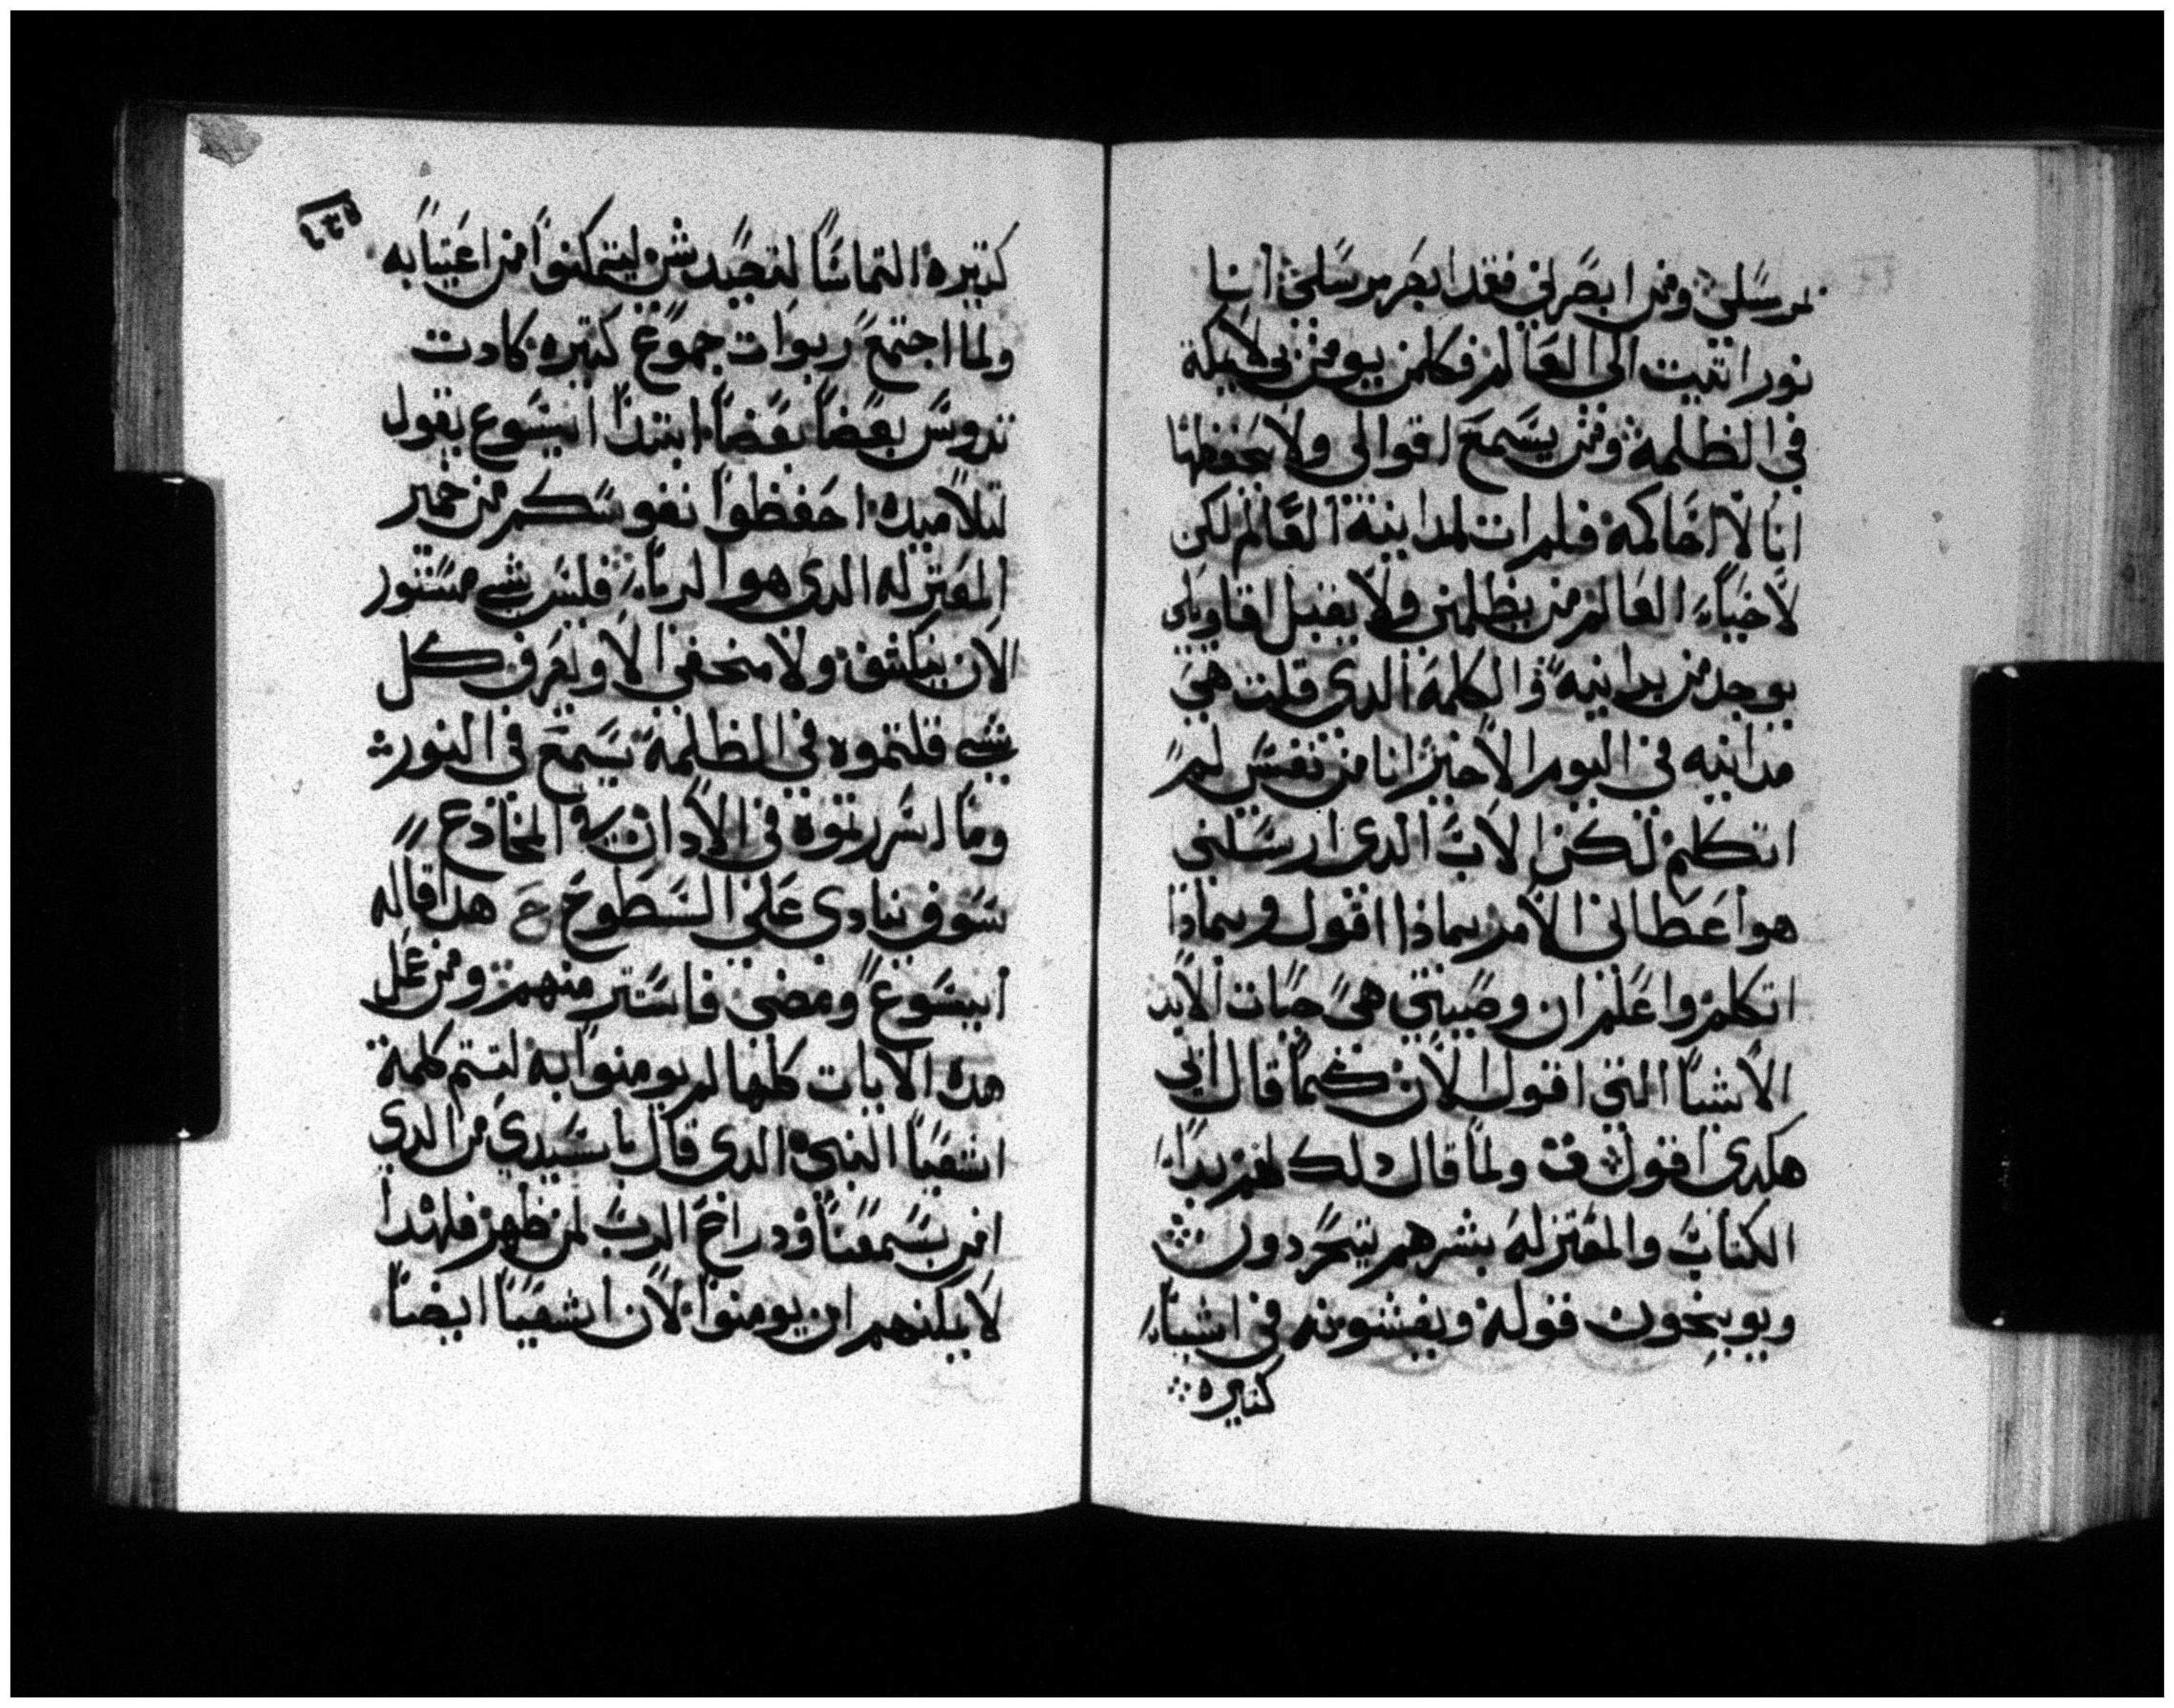 مرسلي ومن ابصرني فقد ابصر مرسلي انا
نور اتيت الى العالم فكلمن يومن بي لا يبكة
في الظلمة ومن يسمع اقوالي ولا يحفظها
انا لا احاكمه فلم ات لمداينة العالم لكن
لاحياء العالم من يظلمني ولا يقبل اقاويلي
يوجد من يداينه ذا الكلمة الدي قلت هي
مداينه في اليوم الاخير انا من نفسي لم
اتكلم لكن الاب الدي ارسلني
هو اعطاني الامر بماذا اقول وبماذا
اتكلم واعلم ان وصيتي هي حيات الابد
الاشيا التي اقول الان كما قال ابي
هكدى اقول ق ولما قال دلك لهم بدا
الكتاب والمعتزله بشرهم يتحردون
ويوبخون قوله ويفشونه في اشياء
كتيره
١٣٥
كتيره التماسا لتصيد شي ليتمكنوا من اغتيابه
ولما اجتمع ربوات جموع كتيره كادت
تدوس بعضا بعضا ابتدا ايسوع يقول
لتلاميده احفظوا نفوسكم من خمير
المعتزله الدي هو الرياء فليس شي مستور
الا ان ينكشف ولا منخفي الا ويعرف كل
شي قلتموه في الظلمة يسمع في النور
وما اسررتوه في الادان في المخادع
سوف ينادى على السطوح ع هدا قاله
ايسوع ومضى فاستتر منهم ومن عمل
هده الايات كلها لم يومنوا به لتتم كلمة
اشعيا النبي الدي قال يا سيدي من الدي
امن بسمعنا ودراع الرب لمن ظهر فلهدا
لا يمكنهم ان يومنوا لان اشعيا ايضا